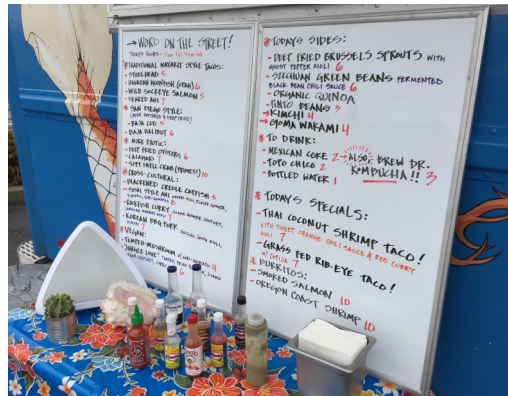 → WORD ON THE STREET!
TRADITIONAL NAYARIT STYLE TACOS:
- STEELHEAD 5
- HAWAIIAN MONKFISH 6
- WILD SOCKEYE SALMON 5
- SEARED AHI 7
* SAN DIEGO STYLE:
(BEER BATTERED & DEEP FRIED)
- BAJA COD 5
- BAJA HALIBUT 6
* MORE EXOTIC:
- DEEP FRIED OYSTERS 6
- CALAMARI 7
- SOFT SHELL CRAB 10
* CROSS-CULTURAL:
- BLACKENED CREOLE CATFISH 5
- SUSHI STYLE AHI
- ROCKFISH CURRY
- KOREAN BBQ PORK
* VEGAN:
- TEMPEH-MUSHROOM
- "JUNGLE LOVE"
* TODAYS SIDES:
- DEEP FRIED BRUSSELS SPROUTS WITH
GHOST PEPPER AIOLI 6
- SZECHUAN GREEN BEANS FERMENTED
BLACK BEAN CHILI SAUCE 6
- ORGANIC QUINOA
- PINTO BEANS 3
- KIMCHI 4
→ GOMA WAKAMI 4
* TO DRINK:
- MEXICAN COKE 2
- TOPO CHICO 2
- BOTTLED WATER 1
→ ALSO: BREW DR.
KOMBUCHA!! 3
* TODAYS SPECIALS:
- THAI COCONUT SHRIMP TACO!
WITH SWEET ORANGE CHILI SAUCE & RED CURRY
AIOLI 7
- GRASS FED RIB-EYE TACO!
W/ COTIJA 7
* BURRITOS:
- SMOKED SALMON 10
- OREGON COAST SHRIMP 10